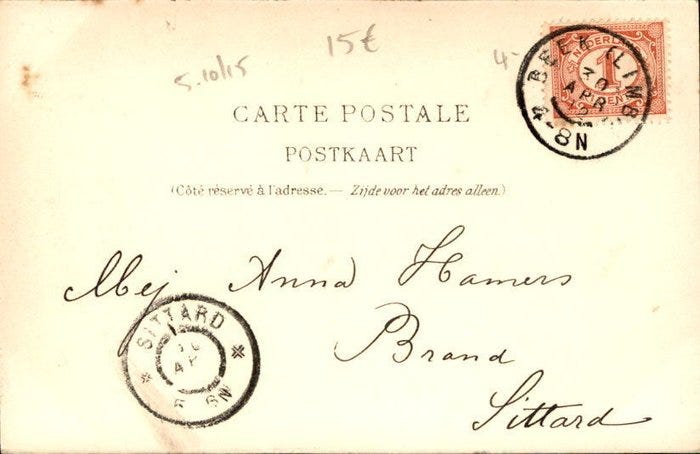 15€
4-
5.10/15
NEDERLAND
1
CENT
BEEK (LIMB
APR
4-8N
CARTE POSTALE
POSTKAART
(Côté réservé à l'adresse. — Zijde voor het adres alleen.)
Mej Anna Hamers
Brand
Sittard
SITTARD